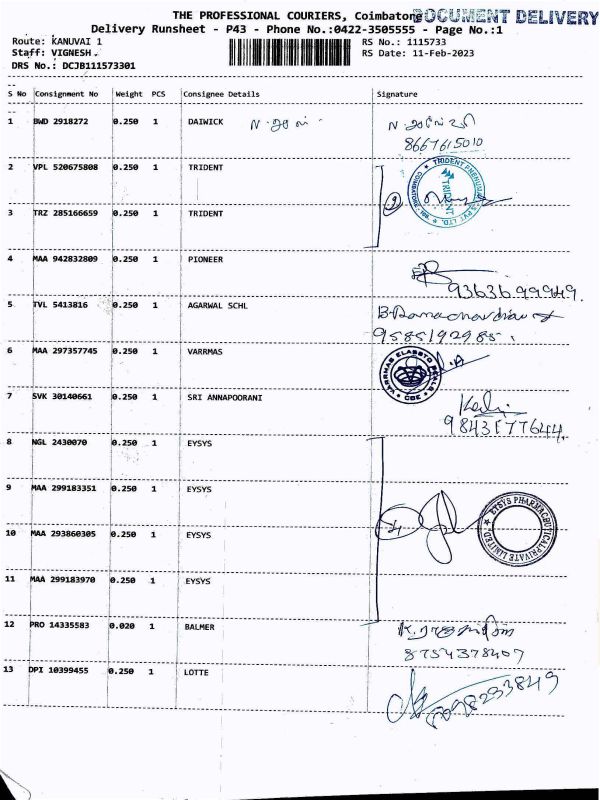 THE PROFESSIONAL COURIERS, Coimbatore DOCUMENT DELIVERY
Delivery Runsheet - P43 - Phone No.:0422-3505555 - Page No.:1
Route: KANUVAI 1 RS No.: 1115733
Staff: VIGNESH. RS Date: 11-Feb-2023
DRS No.: DCJB111573301
S No Consignment No Weight PCS Consignee Details Signature
1 BWD 2918272 0.250 1 DAIWICK
8667615010
2 VPL 520675808 0.250 1 TRIDENT
TRIDENT PNEUMATICS PVT. LTD. COIMBATORE TRIDENT
3 TRZ 285166659 0.250 1 TRIDENT
4 MAA 942832809 0.250 1 PIONEER
9363699949.
5 TVL 5413816 0.250 1 AGARWAL SCHL B. Ramachandran
9585192985.
6 MAA 297357745 0.250 1 VARRMAS
VARRMAS ELASSTO SEALS CBE
7 SVK 30140661 0.250 1 SRI ANNAPOORANI
9843577644.
8 NGL 2430070 0.250 1 EYSYS
9 MAA 299183351 0.250 1 EYSYS
EYSYS PHARMACEUTICAL PRIVATE LIMITED
10 MAA 293860305 0.250 1 EYSYS
11 MAA 299183970 0.250 1 EYSYS
12 PRO 14335583 0.020 1 BALMER
8754378407
13 DPI 10399455 0.250 1 LOTTE